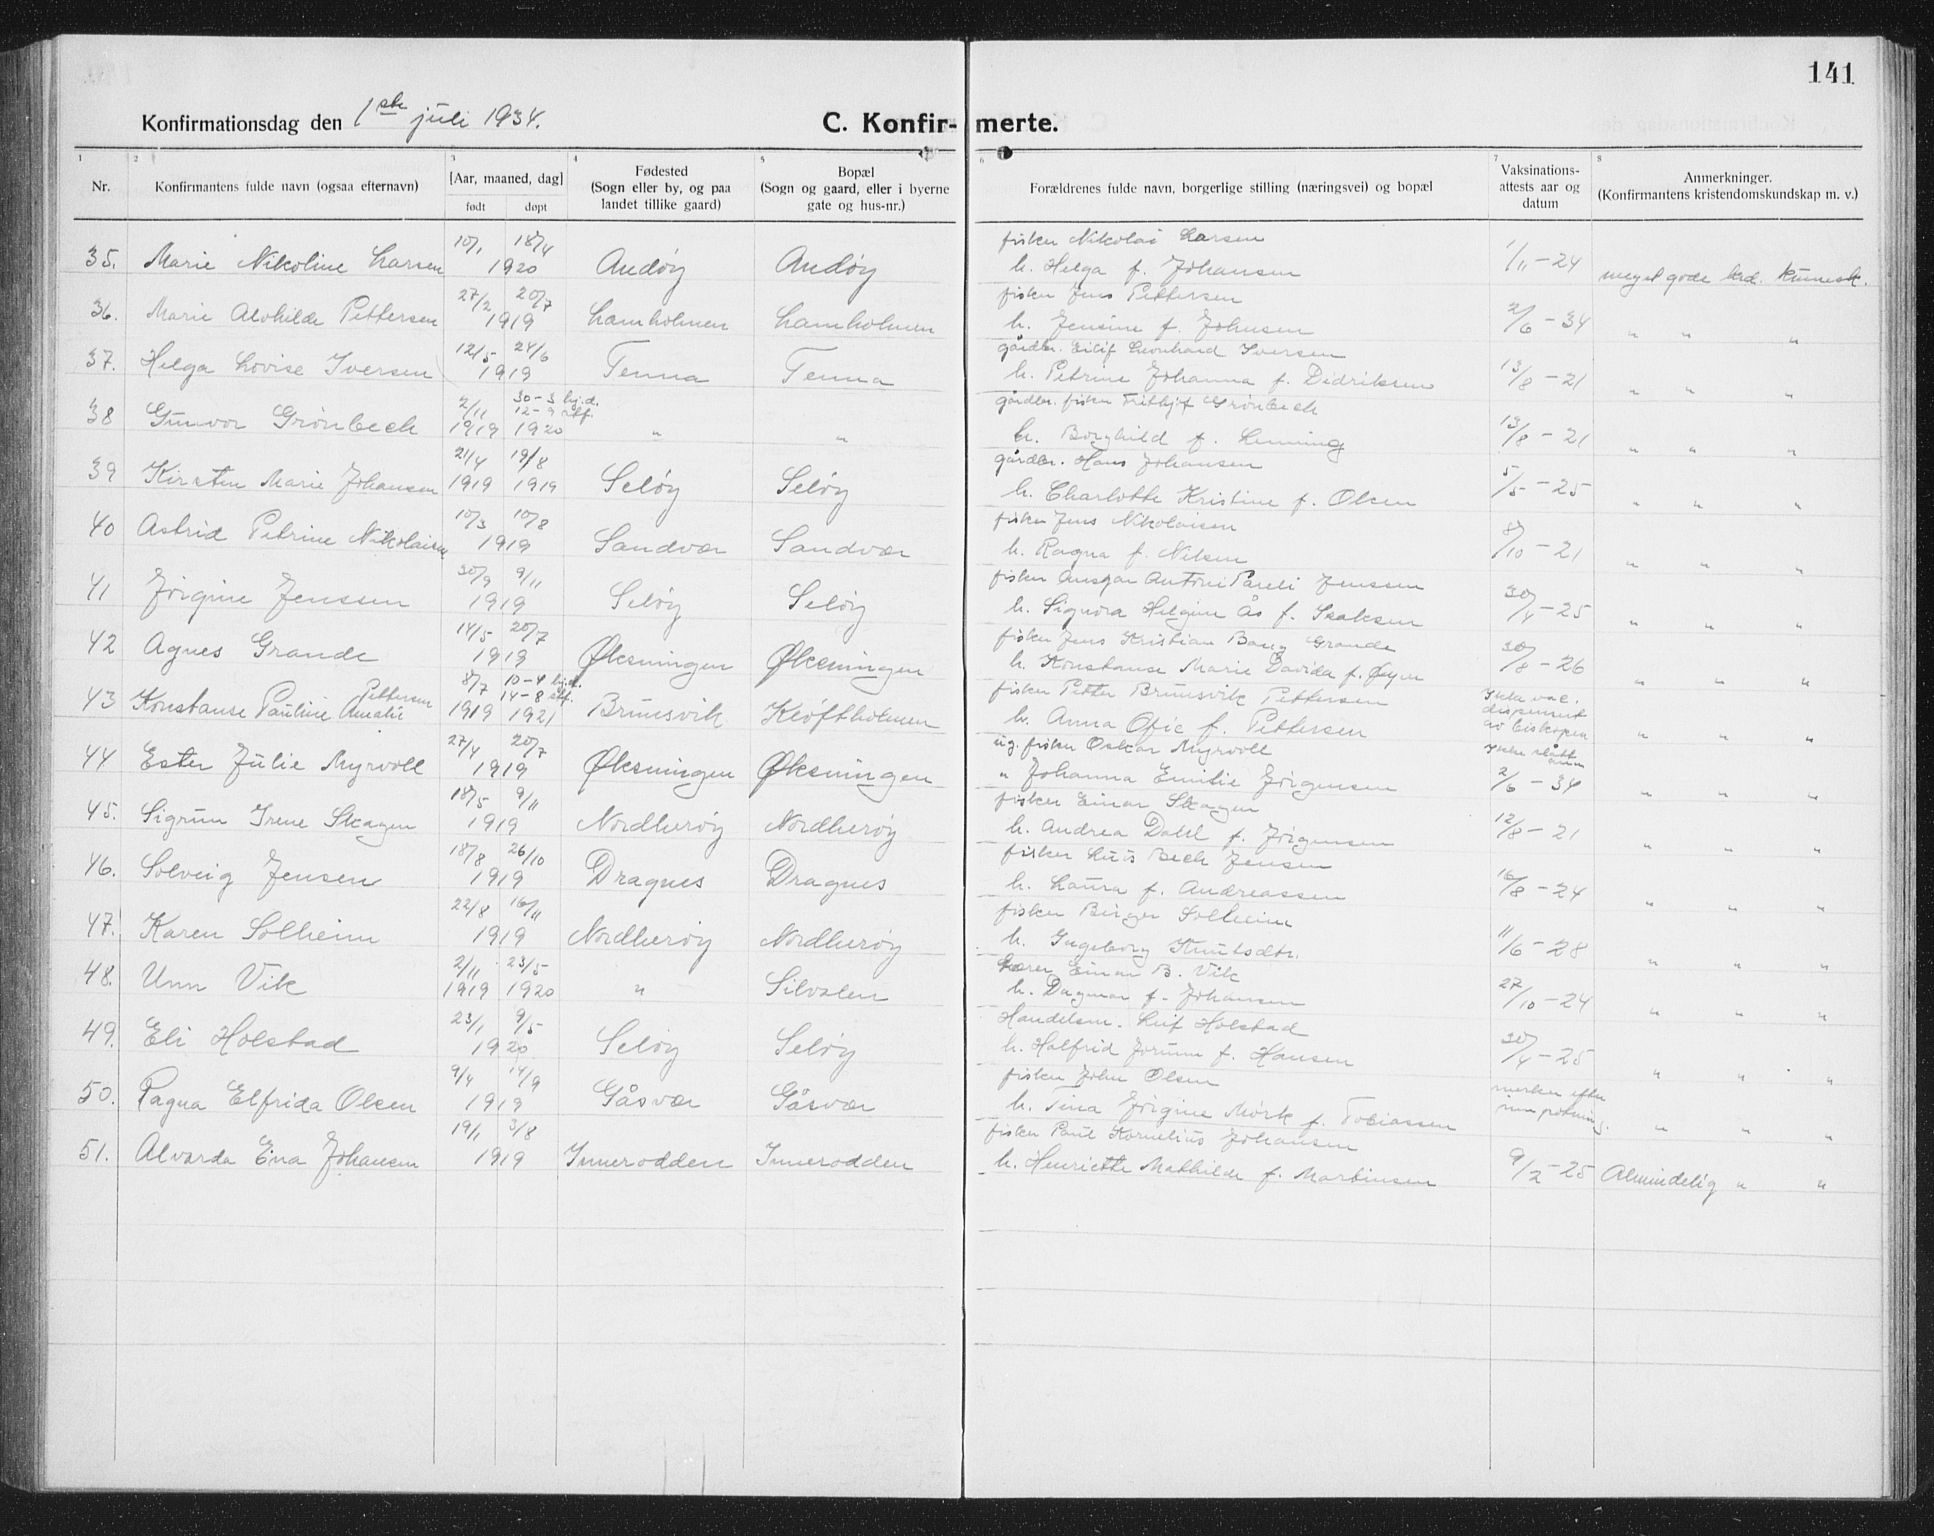 141
Konfirmationsdag den 1ste juli 1934.
C. Konfir- merte.
1 2 3 4 5 6 7 8
Nr. Konfirmantens fulde navn (ogsaa efternavn) [Aar, maaned, dag] født døpt Fødested (Sogn eller by, og paa landet tillike gaard) Bopæl (Sogn og gaard, eller i byerne gate og hus-nr.) Forældrenes fulde navn, borgerlige stilling (næringsvei) og bopæl Vaksinations-attests aar og datum Anmerkninger. (Konfirmantens kristendomskundskap m. v.)
35. Marie Nikoline Larsen 10/1 18/4 1920 Andøy Andøy fisker Nikolai Larsen h. Helga f. Johansen 1/11-24 meget gode krd. kunnsk.
36. Marie Alvhilde Pettersen 27/2 20/7 1919 Lamholmen Lamholmen fisker Jens Pettersen h. Jensine f. Johnsen 2/6-34 " " "
37. Helga Lovise Iversen 12/5 24/6 1919 Tenna Tenna gårdbr. Eilif Leonhard Iversen h. Petrine Johanna f. Didriksen 13/8-21 " " "
38 Gunvor Grønbech 2/11 1919 30-3 hj.d. 12-9 stf. 1920 " " gårdbr. fisker Frithjof Grønbech h. Borghild f. Lenning 13/8-21 " " "
39 Kirsten Marie Johansen 21/4 1919 19/8 1919 Seløy Seløy gårdbr. Hans Johansen h. Charlotte Kristine f. Olsen 5/5-25 " " "
40 Astrid Petrine Nikolaisen 10/3 10/8 1919 Sandvær Sandvær fisker Jens Nikolaisen h. Ragna f. Nilsen 8/10-21 " " "
41 Jørgine Jenssen 30/9 9/11 1919 Seløy Seløy fisker Ansgar Antoni Pareli Jenssen h. Signora Helgine Ås f. Isaksen 30/4-25 " " "
42 Agnes Grande 14/5 20/7 1919 Øksningen Øksningen fisker Jens Kristian Bang Grande h. Konstanse Marie Davida f. Øyen 30/8-26 " " "
43 Konstanse Pauline Amalie Pettersen 8/7 1919 10-4 hj.d. 14-8 stf. 1921 Brunsvik Kløftholmen fisker Petter Brunsvik Pettersen h. Anna Ofie f. Pettersen Ikke vac. dispensert av biskopen " " "
44 Ester Julie Myrvoll 27/4 20/7 1919 Øksningen Øksningen ug. fisker Oskar Myrvoll " Johanna Emilie Jørgensen Ikke slått an 2/6-34 " " "
45. Sigrun Irene Skagen 18/5 9/11 1919 Nordherøy Nordherøy fisker Einar Skagen h. Andrea Dahl f. Jørgensen 12/8-21 " " "
46. Solveig Jensen 18/8 26/10 1919 Dragnes Dragnes fisker Luis Bech Jensen h. Laura f. Andreassen 16/8-24 " " "
47. Karen Solheim 22/8 16/11 1919 Nordherøy Nordherøy fisker Birger Solheim h. Ingeborg Knutsdtr. 11/6-28 " " "
48. Unn Vik 2/11 1919 23/5 1920 " Silvalen Lærer Einar B. Vik h. Dagmar f. Johansen 27/10-24 " " "
49. Eli Holstad 23/1 9/5 1920 Seløy Seløy Handelsm. Leif Holstad h. Halfrid Jorunn f. Hansen 30/4-25 " " "
50. Ragna Elfrida Olsen 9/4 14/9 1919 Gåsvær Gåsvær fisker John Olsen h. Tina Jørgine Mørk f. Tobiassen merker efter " " "
51. Alvarda Ena Johansen 19/1 3/8 1919 Innerodden Innerodden fisker Paul Kornelius Johansen h. Henriette Mathilde f. Martinsen 9/2-25 Almindelig " "